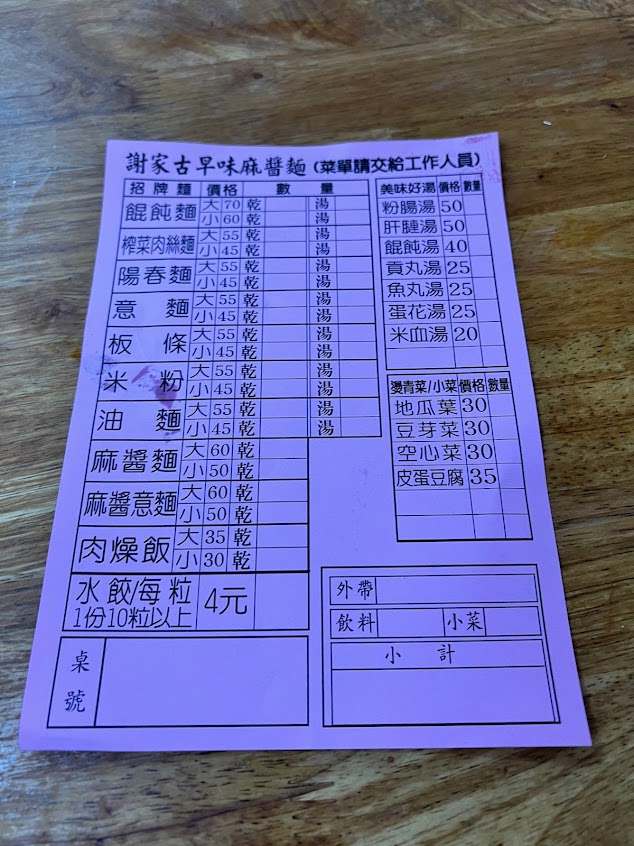 謝家古早味麻醬麵(菜單請交給工作人員)
招牌麵 價格 數量
餛飩麵 大 70 乾 湯
小 60 乾 湯
榨菜肉絲麵 大 55 乾 湯
小 45 乾 湯
陽春麵 大 55 乾 湯
小 45 乾 湯
意麵 大 55 乾 湯
小 45 乾 湯
板條 大 55 乾 湯
小 45 乾 湯
米粉 大 55 乾 湯
小 45 乾 湯
油麵 大 55 乾 湯
小 45 乾 湯
麻醬麵 大 60 乾
小 50 乾
麻醬意麵 大 60 乾
小 50 乾
肉燥飯 大 35 乾
小 30 乾
水餃/每粒 4元
1份10粒以上
桌號
美味好湯 價格 數量
粉腸湯 50
肝腱湯 50
餛飩湯 40
貢丸湯 25
魚丸湯 25
蛋花湯 25
米血湯 20
燙青菜/小菜 價格 數量
地瓜葉 30
豆芽菜 30
空心菜 30
皮蛋豆腐 35
外帶
飲料 小菜
小計